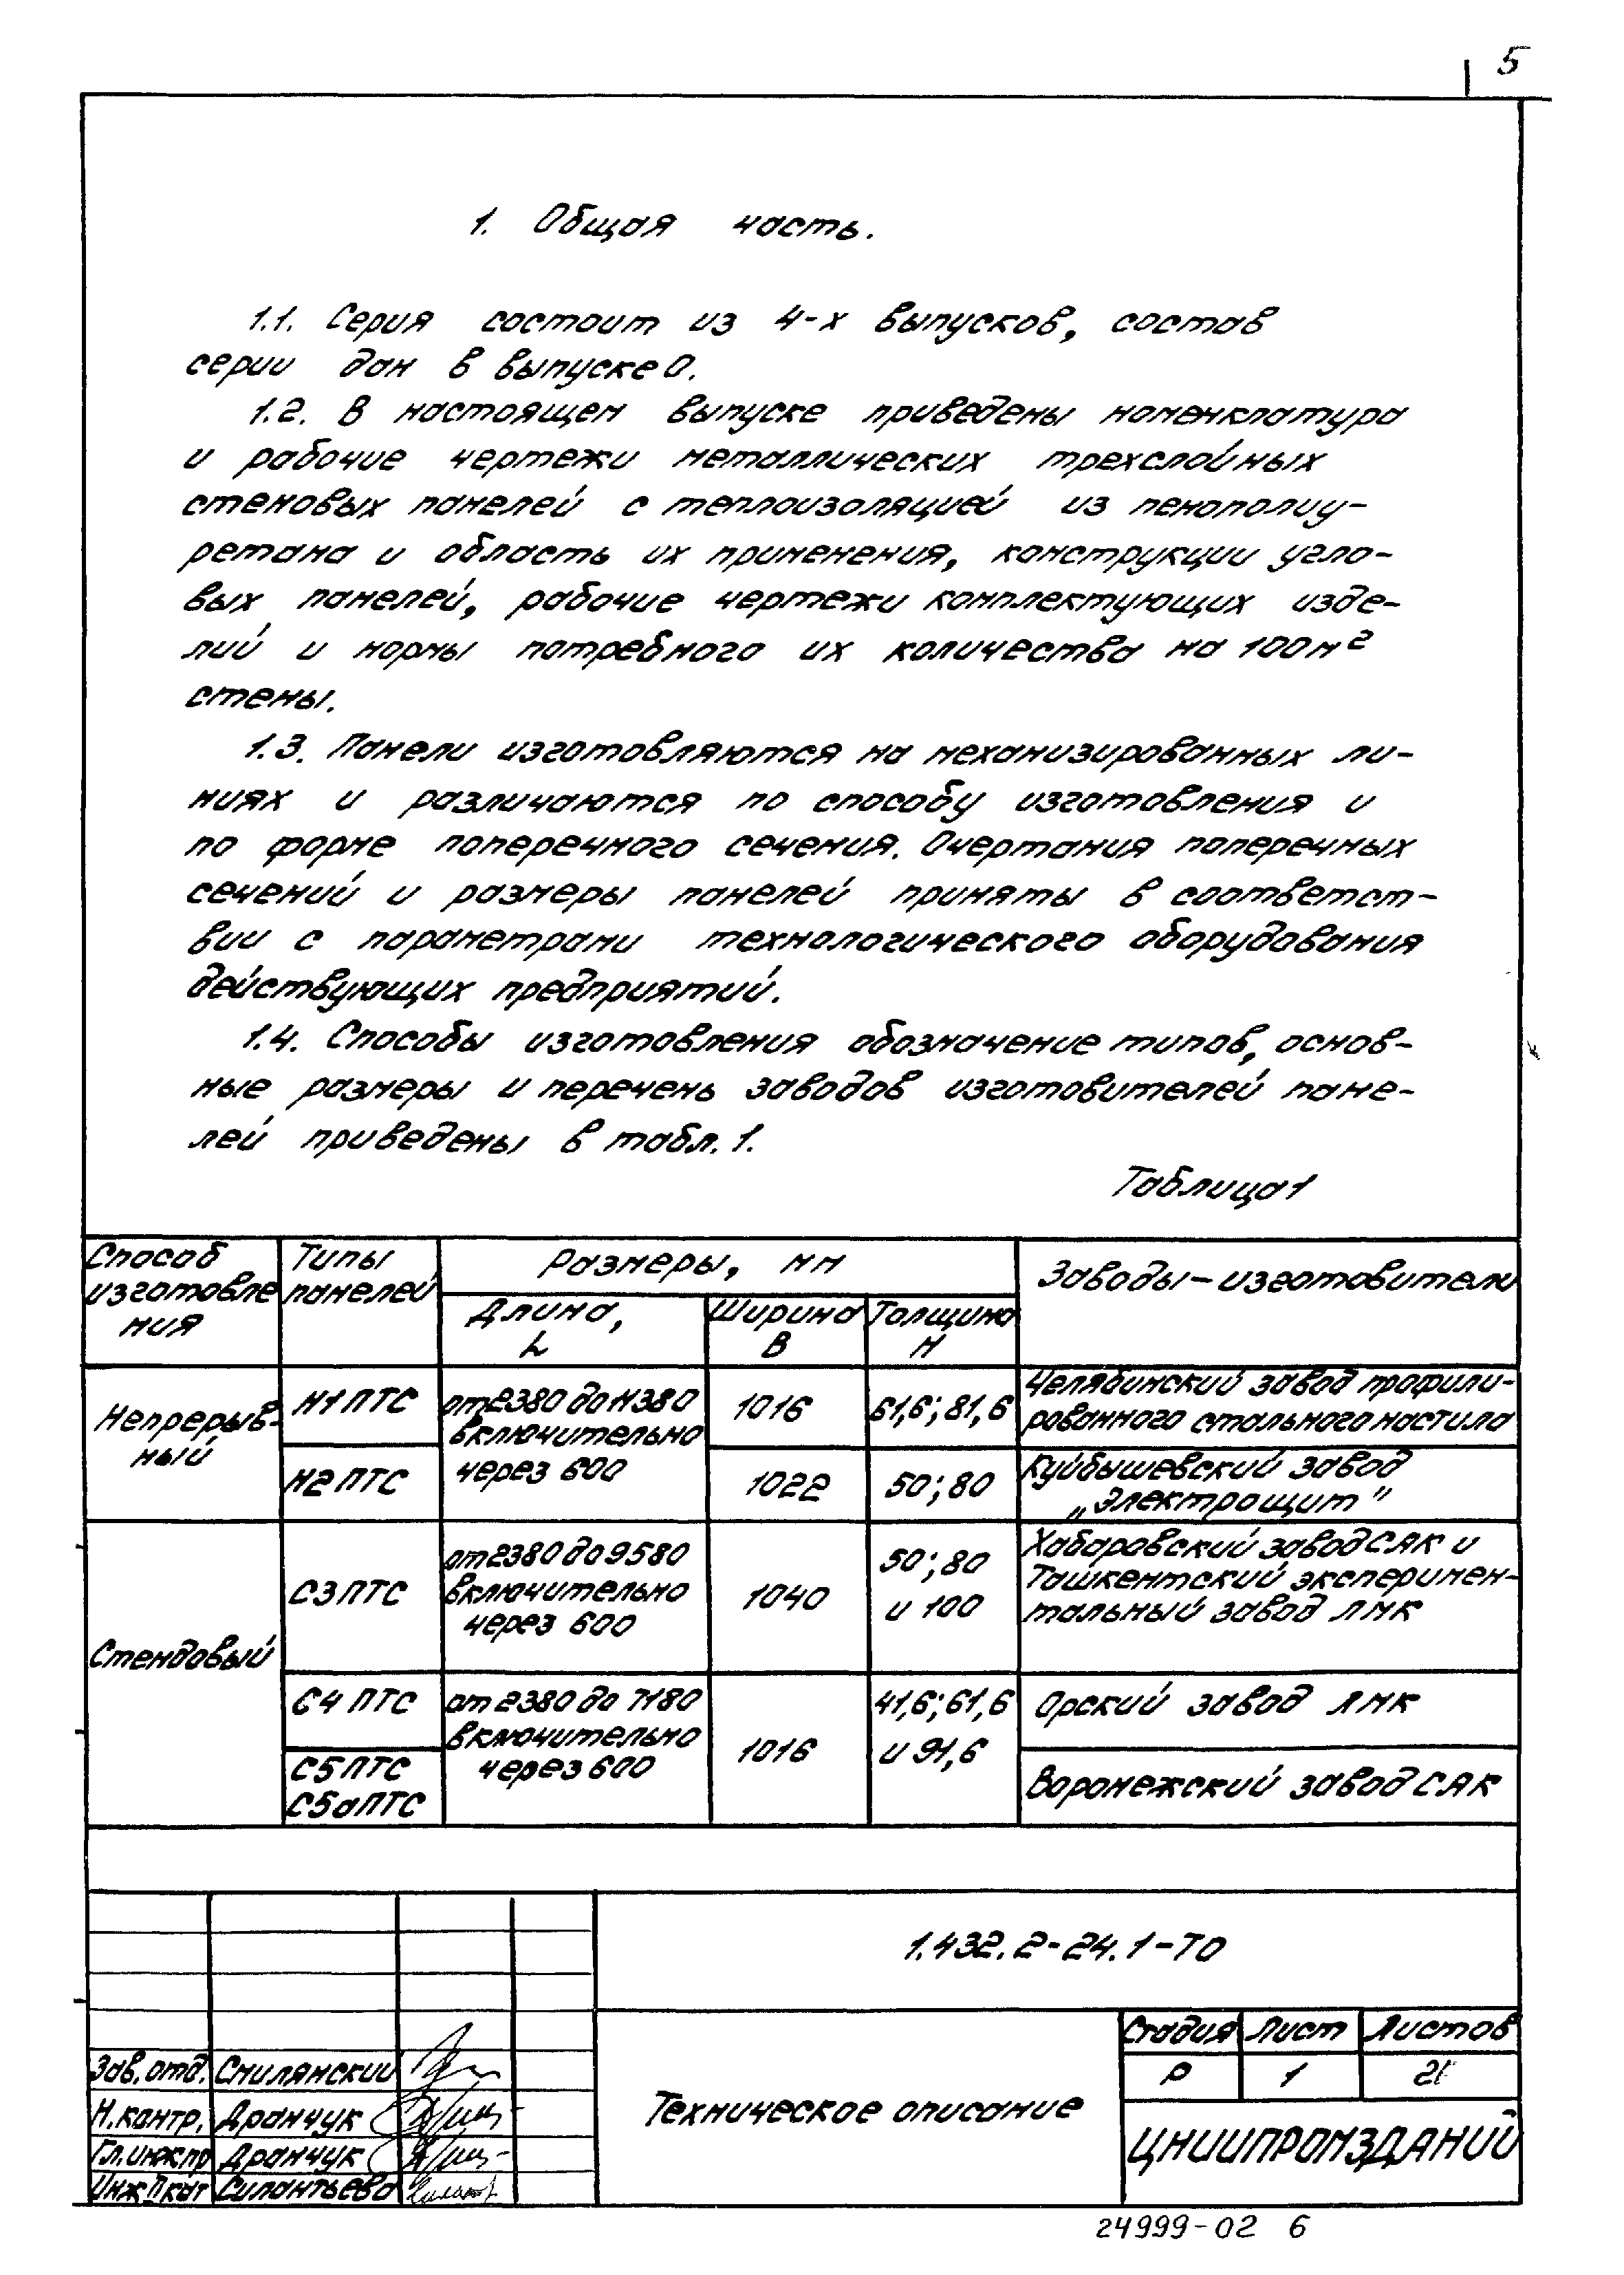 5
1. Общая часть.
1.1. Серия состоит из 4-х выпусков, состав
серии дан в выпуске 0.
1.2. В настоящем выпуске приведены номенклатура
и рабочие чертежи металлических трехслойных
стеновых панелей с теплоизоляцией из пенополиу-
ретана и область их применения, конструкции угло-
вых панелей, рабочие чертежи комплектующих изде-
лий и нормы потребного их количества на 100 м²
стены.
1.3. Панели изготовляются на механизированных ли-
ниях и различаются по способу изготовления и
по форме поперечного сечения. Очертания поперечных
сечений и размеры панелей приняты в соответст-
вии с параметрами технологического оборудования
действующих предприятий.
1.4. Способы изготовления обозначение типов, основ-
ные размеры и перечень заводов изготовителей пане-
лей приведены в табл. 1.
Таблица 1
Способ
изготовле
ния
Типы
панелей
Размеры, мм
Длина,
L
Ширина
В
Толщина
Н
Заводы-изготовители
Непрерыв-
ный
Н1 ПТС
от 2380 до 11380
включительно
через 600
1016
61,6; 81,6
Челябинский завод профили-
рованного стального настила
Н2 ПТС
1022
50; 80
Куйбышевский завод
„Электрощит"
Стендовый
С3 ПТС
от 2380 до 9580
включительно
через 600
1040
50; 80
и 100
Хабаровский завод САК и
Ташкентский эксперимен-
тальный завод ЛМК
С4 ПТС
от 2380 до 7180
включительно
через 600
1016
41,6; 61,6
и 91,6
Орский завод ЛМК
С5 ПТС
С5а ПТС
Воронежский завод САК
1.432.2-24.1-ТО
Зав. отд. Смилянский
Н. контр. Дранчук
Гл. инж. пр Дранчук
Инж II кат Силантьева
Техническое описание
Стадия Лист Листов
Р 1
ЦНИИПРОМЗДАНИЙ
24999-02 6